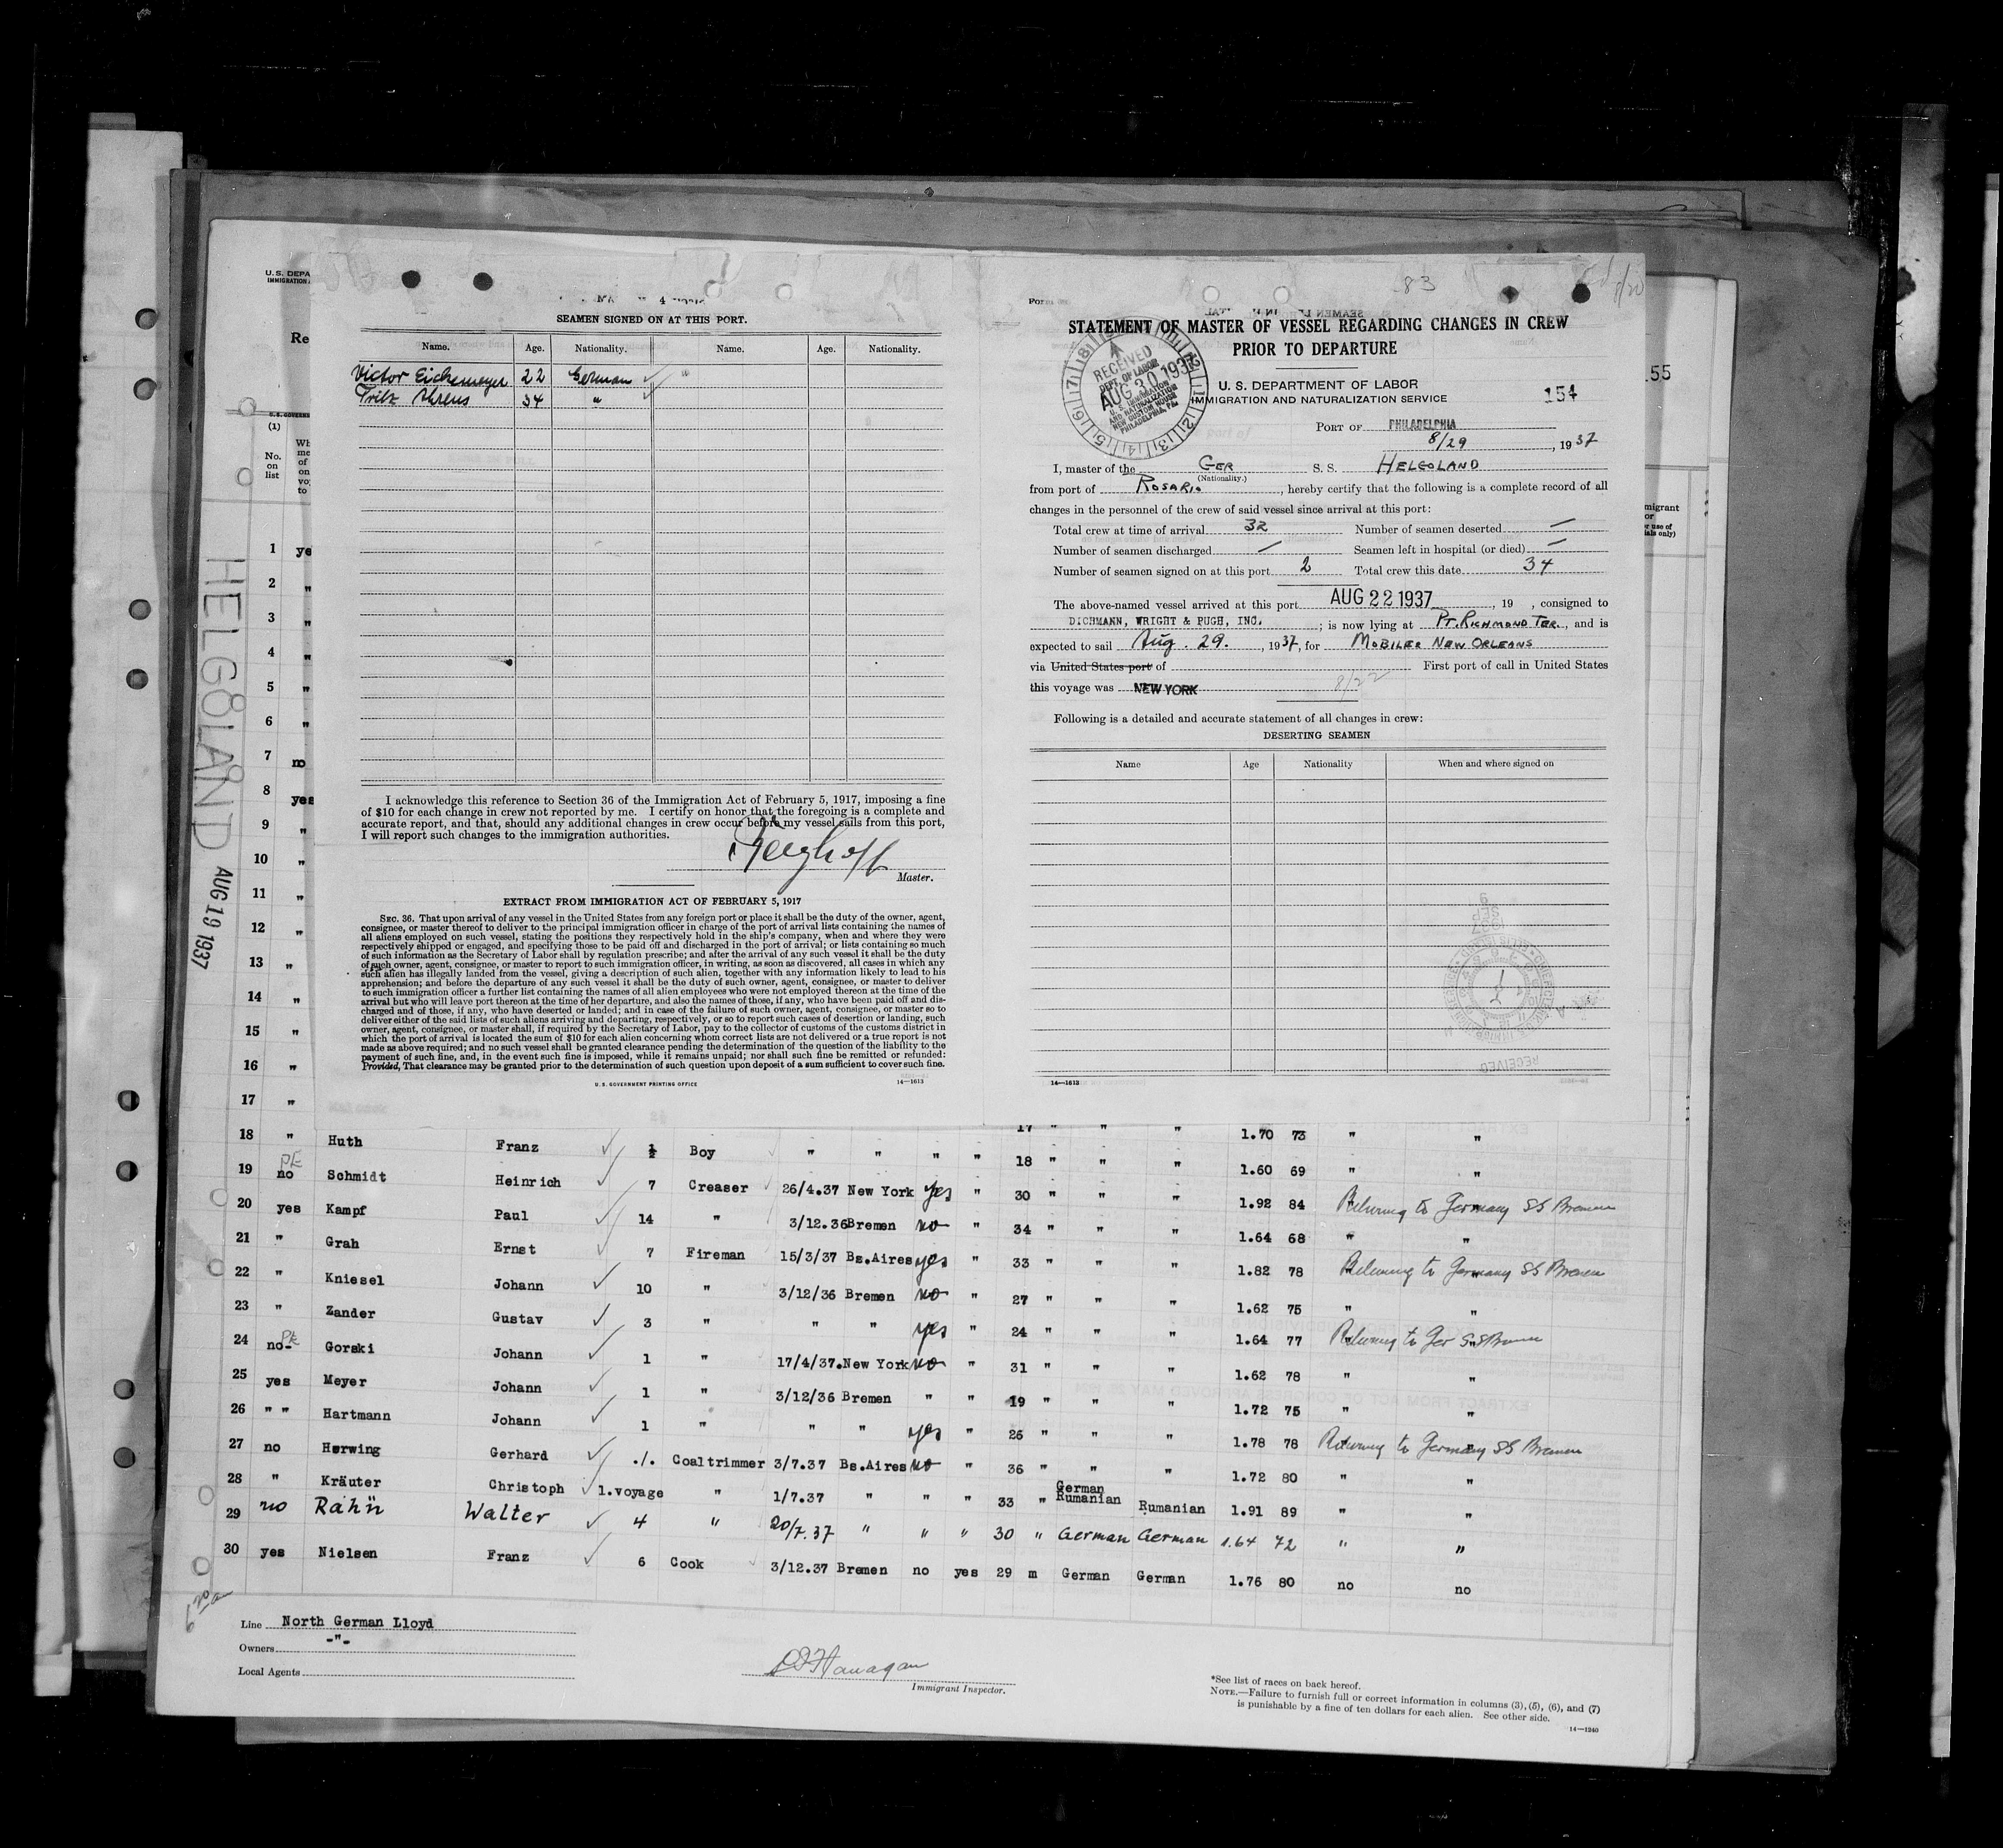 U.S. DEPA
IMMIGRATION
Re
(1)
No.
on
list
HELGOLAND AUG 19 1937
SEAMEN SIGNED ON AT THIS PORT.
Name. Age. Nationality. Name. Age. Nationality.
Victor Eichemeyer 22 German "
Fritz Ahrens 34 "
I acknowledge this reference to Section 36 of the Immigration Act of February 5, 1917, imposing a fine
of $10 for each change in crew not reported by me. I certify on honor that the foregoing is a complete and
accurate report, and that, should any additional changes in crew occur before my vessel sails from this port,
I will report such changes to the immigration authorities.
Master.
EXTRACT FROM IMMIGRATION ACT OF FEBRUARY 5, 1917
SEC. 36. That upon arrival of any vessel in the United States from any foreign port or place it shall be the duty of the owner, agent,
consignee, or master thereof to deliver to the principal immigration officer in charge of the port of arrival lists containing the names of
all aliens employed on such vessel, stating the positions they respectively hold in the ship's company, when and where they were
respectively shipped or engaged, and specifying those to be paid off and discharged in the port of arrival; or lists containing so much
of such information as the Secretary of Labor shall by regulation prescribe; and after the arrival of any such vessel it shall be the duty
of such owner, agent, consignee, or master to report to such immigration officer, in writing, as soon as discovered, all cases in which any
such alien has illegally landed from the vessel, giving a description of such alien, together with any information likely to lead to his
apprehension; and before the departure of any such vessel it shall be the duty of such owner, agent, consignee, or master to deliver
to such immigration officer a further list containing the names of all alien employees who were not employed thereon at the time of the
arrival but who will leave port thereon at the time of her departure, and also the names of those, if any, who have been paid off and dis-
charged and of those, if any, who have deserted or landed; and in case of the failure of such owner, agent, consignee, or master so to
deliver either of the said lists of such aliens arriving and departing, respectively, or so to report such cases of desertion or landing, such
owner, agent, consignee, or master shall, if required by the Secretary of Labor, pay to the collector of customs of the customs district in
which the port of arrival is located the sum of $10 for each alien concerning whom correct lists are not delivered or a true report is not
made as above required; and no such vessel shall be granted clearance pending the determination of the question of the liability to the
payment of such fine, and, in the event such fine is imposed, while it remains unpaid; nor shall such fine be remitted or refunded:
Provided, That clearance may be granted prior to the determination of such question upon deposit of a sum sufficient to cover such fine.
U. S. GOVERNMENT PRINTING OFFICE 14—1613
83
STATEMENT OF MASTER OF VESSEL REGARDING CHANGES IN CREW
PRIOR TO DEPARTURE
RECEIVED
DEPT. OF LABOR
AUG 30 1937
U. S. IMMIGRATION
AND NATURALIZATION
NEW CUSTOM HOUSE
PHILADELPHIA, PA.
U. S. DEPARTMENT OF LABOR
IMMIGRATION AND NATURALIZATION SERVICE 154
155
PORT OF PHILADELPHIA
8/29, 1937
I, master of the GER S. S. HELGOLAND
(Nationality.)
from port of ROSARIO, hereby certify that the following is a complete record of all
changes in the personnel of the crew of said vessel since arrival at this port:
Total crew at time of arrival 32 Number of seamen deserted —
Number of seamen discharged — Seamen left in hospital (or died) —
Number of seamen signed on at this port 2 Total crew this date 34
The above-named vessel arrived at this port AUG 22 1937, 19 , consigned to
DICHMANN, WRIGHT & PUGH, INC. ; is now lying at PT. RICHMOND TER., and is
expected to sail Aug. 29., 1937, for MOBILE & NEW ORLEANS
via United States port of First port of call in United States
this voyage was NEW YORK 8/22
Following is a detailed and accurate statement of all changes in crew:
DESERTING SEAMEN
Name Age Nationality When and where signed on
14—1613
1 ye
2 "
3 "
4 "
5 "
6 "
7 no
8 yes
9 "
10 "
11 "
12 "
13 "
14 "
15 "
16 "
17 " 17 " " "
18 " Huth Franz ½ Boy " " " " 18 " " " 1.70 73 " "
19 no Schmidt Heinrich 7 Creaser 26/4.37 New York yes " 30 " " " 1.60 69 "
20 yes Kampf Paul 14 " 3/12.36 Bremen no " 34 " " " 1.92 84 Returning to Germany SS Bremen
21 " Grah Ernst 7 Fireman 15/3/37 Bs.Aires yes " 33 " " " 1.64 68 " "
22 " Kniesel Johann 10 " 3/12/36 Bremen no " 27 " " " 1.82 78 Returning to Germany SS Bremen
23 " Zander Gustav 3 " " " yes " 24 " " " 1.62 75 " "
24 no Gorski Johann 1 " 17/4/37. New York no " 31 " " " 1.64 77 Returning to Ger SS Bremen
25 yes Meyer Johann 1 " 3/12/36 Bremen " " 19 " " " 1.62 78 " "
26 " " Hartmann Johann 1 " " " yes " 26 " " " 1.72 75 " "
27 no Herwing Gerhard ./. Coaltrimmer 3/7.37 Bs.Aires no " 36 " " " 1.78 78 Returning to Germany SS Bremen
28 " Kräuter Christoph 1.voyage " 1/7.37 " " " 33 " German Rumanian Rumanian 1.72 80 " "
1.91 89 " "
29 no Rahn Walter 4 " 20/7.37 " " " 30 " German German 1.64 72 " "
30 yes Nielsen Franz 6 Cook 3/12.37 Bremen no yes 29 m German German 1.76 80 no no
Line North German Lloyd
Owners -"-
Local Agents
Immigrant Inspector.
*See list of races on back hereof.
NOTE.—Failure to furnish full or correct information in columns (3), (5), (6), and (7)
is punishable by a fine of ten dollars for each alien. See other side.
14—1240